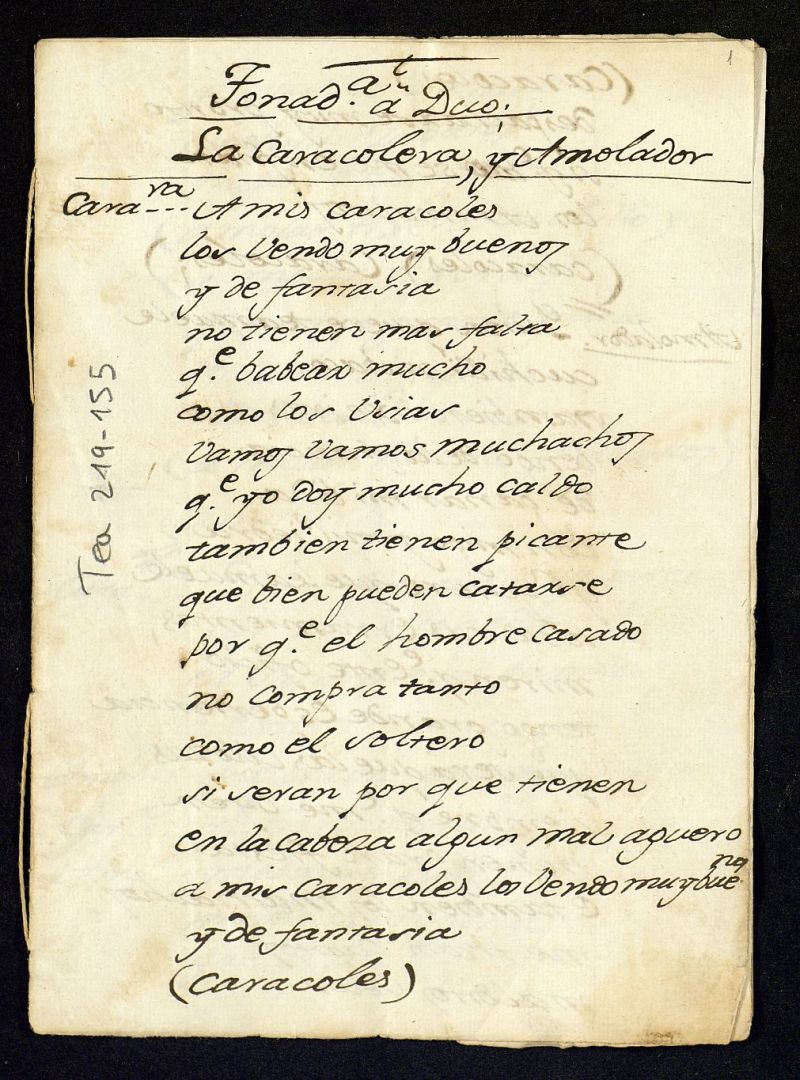 1
Tonad.ª a Duo.
La Caracolera, y Amolador
Cara---ra A mis caracoles
los vendo muy buenos
y de fantasia
no tienen mas falta
q.e babear mucho
como los Usias
vamos vamos muchachos
q.e yo doy mucho caldo
tambien tienen picante
que bien pueden catarse
por q.e el hombre casado
no compra tanto
como el soltero
si seran por que tienen
en la cabeza algun mal aguero
a mis caracoles los vendo muy buenos
y de fantasia
(caracoles)
Tea 219-155